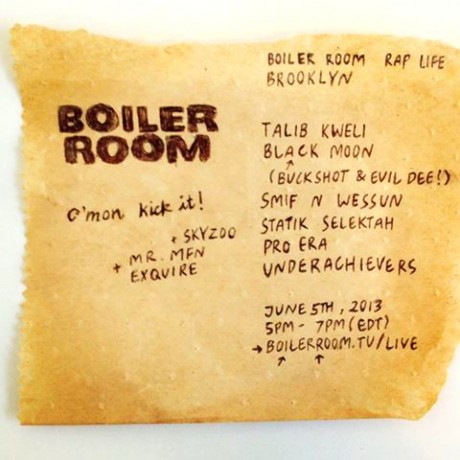 BOILER
ROOM
C'mon kick it!
+ SKYZOO
+ MR. MFN
EXQUIRE
BOILER ROOM RAP LIFE
BROOKLYN
TALIB KWELI
BLACK MOON
(BUCKSHOT & EVIL DEE!)
SMIF N WESSUN
STATIK SELEKTAH
PRO ERA
UNDERACHIEVERS
JUNE 5TH, 2013
5PM - 7PM (EDT)
→BOILERROOM.TV/LIVE